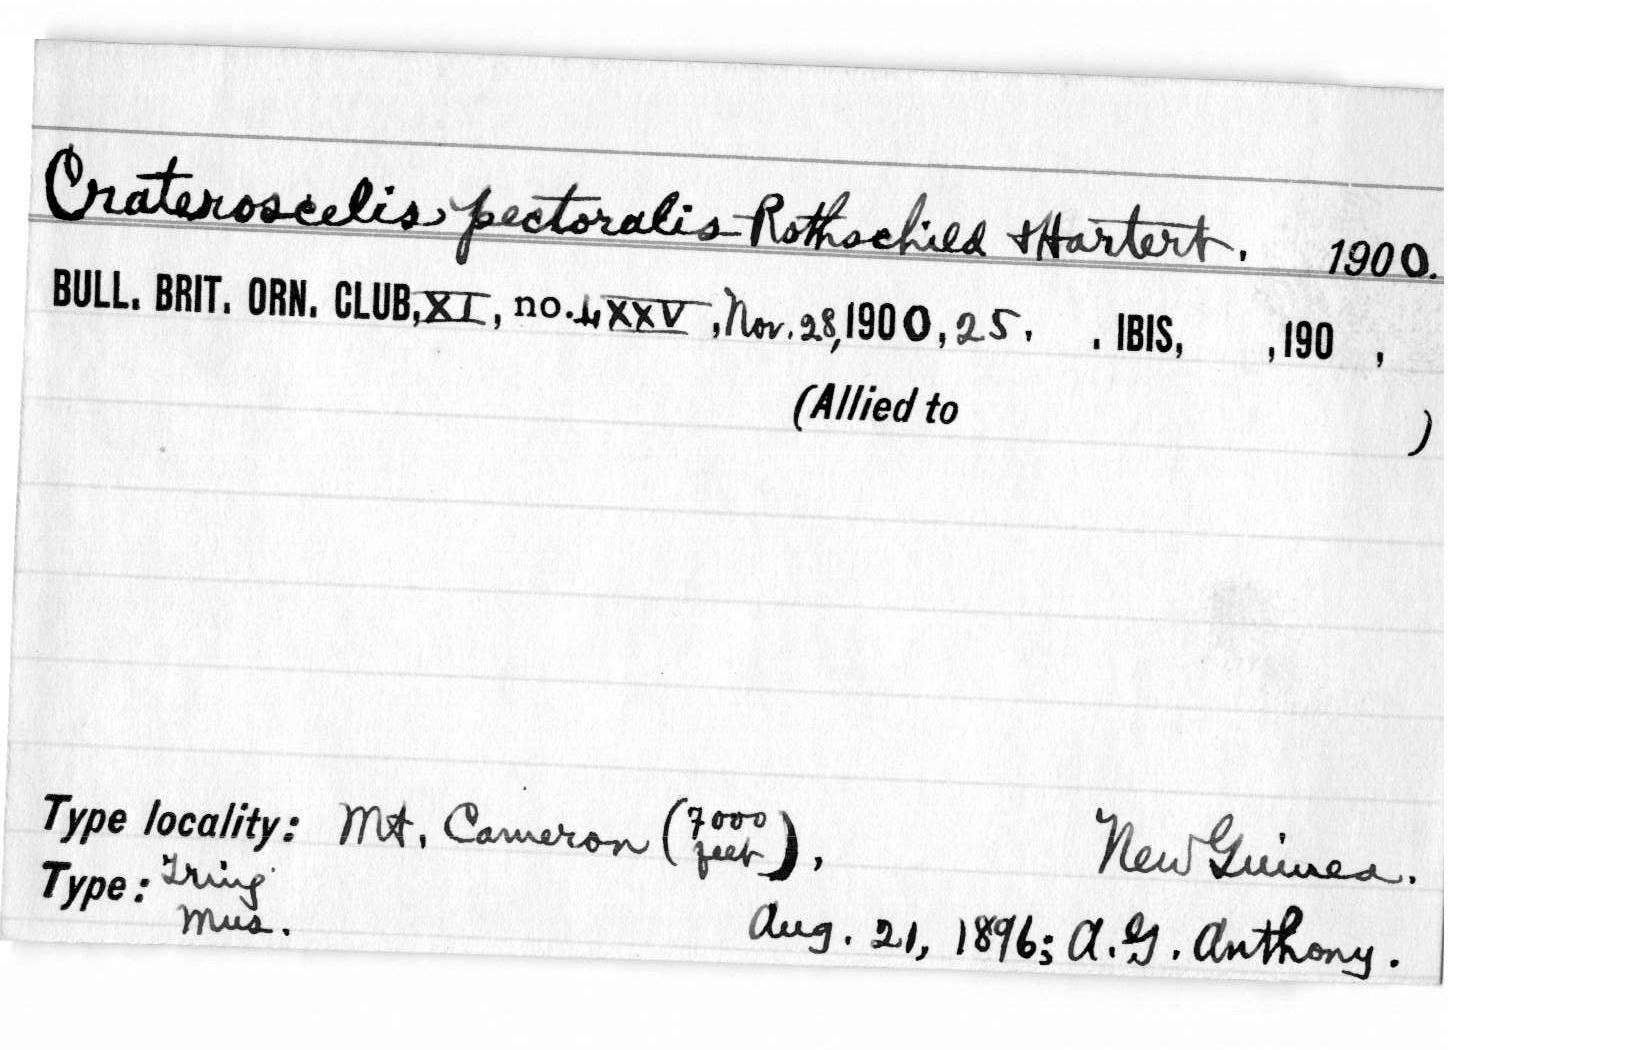 Crateroscelis pectoralis Rothschild & Hartert. 1900.
BULL. BRIT. ORN. CLUB, XI, no. LXXV, Nov. 28, 1900, 25. . IBIS, , 190 ,
(Allied to )
Type locality: Mt. Cameron (7000 feet), New Guinea.
Type: Tring Mus. Aug. 21, 1896; A. G. Anthony.